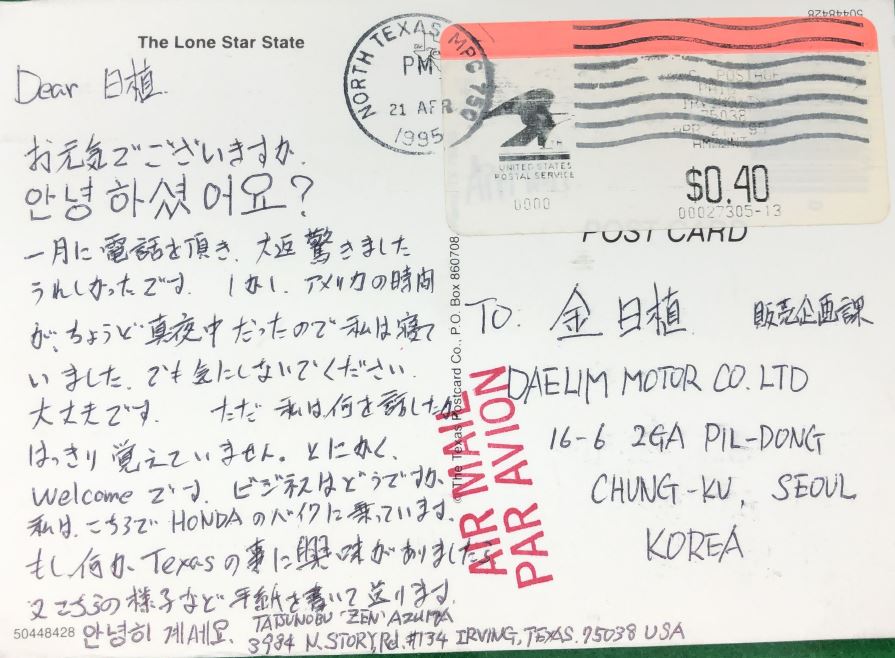 The Lone Star State
NORTH TEXAS MPC 750
PM
21 APR
1995
UNITED STATES
POSTAL SERVICE
0000
$0.40
00027305-13
POST CARD
Dear 日植
お元気でございますか.
안녕하셨어요?
一月に電話を頂き、大変驚きました
うれしかったです. しかし、アメリカの時間
が、ちょうど真夜中だったので私は寝て
いました. でも気にしないでください.
大丈夫です. ただ 私は何を話したか
はっきり覚えていません。とにかく、
Welcomeです. ビジネスはどうですか.
私は、こちらでHONDAのバイクに乗っています.
もし、何か、Texasの事に興味がありましたら
又こちらの様子など手紙を書いて送ります.
안녕히 계세요.
TATSUNOBU 'ZEN' AZUMA
3984 N. STORY, Rd. #134 IRVING, TEXAS. 75038 USA
50448428
© The Texas Postcard Co., P.O. Box 860708
AIR MAIL
PAR AVION
TO. 金日植 販売企画課
DAELIM MOTOR CO. LTD
16-6 2GA PIL-DONG
CHUNG-KU, SEOUL
KOREA
50448428